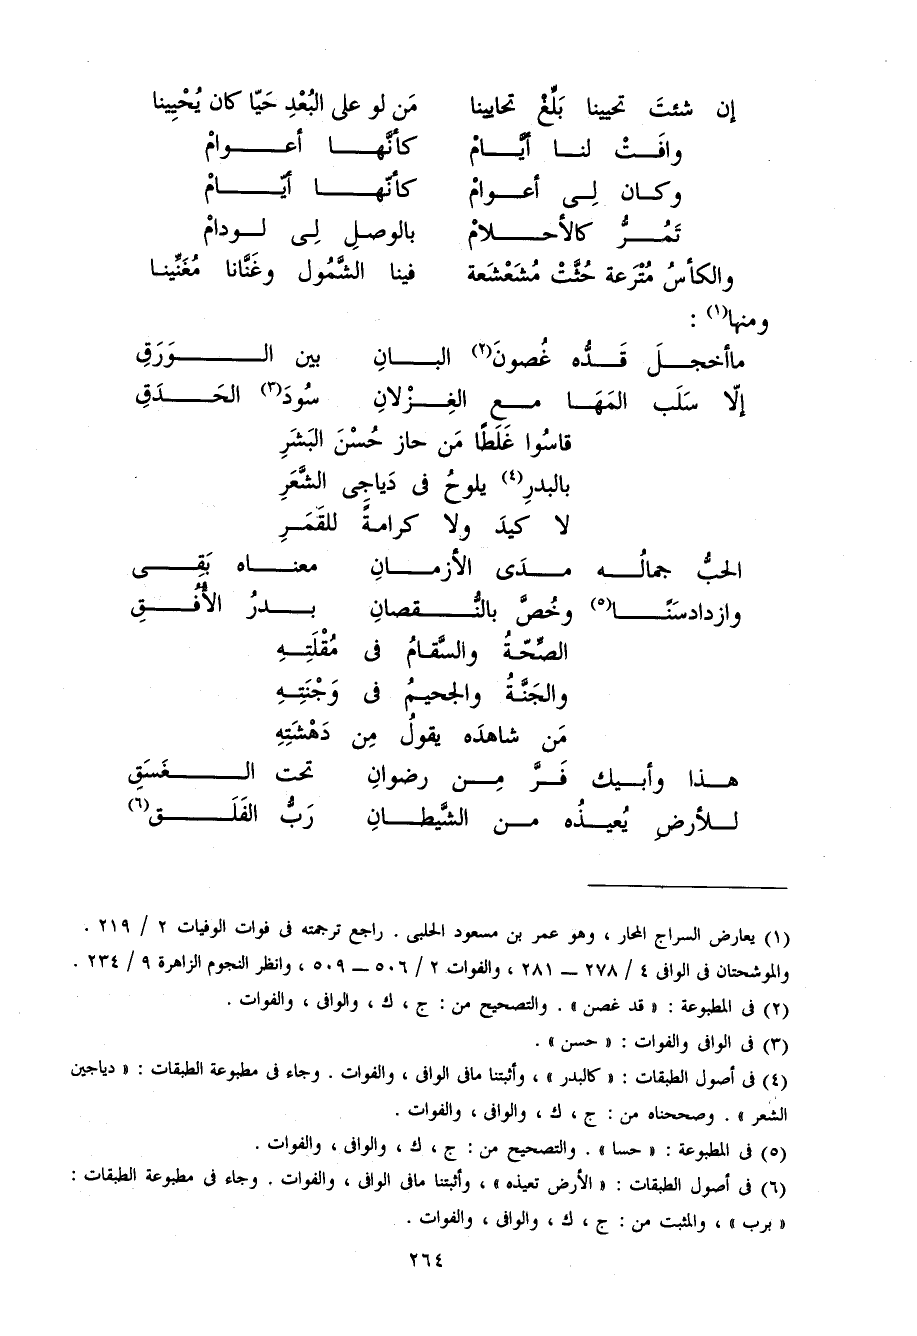 إن شئتَ تحيينا بَلِّغْ تحايينا مَن لو على البُعْدِ حَيّا كان يُحْيِينا
وافَـتْ لنـا أيَّـامْ كأنَّهـا أعـوامْ
وكـان لِـى أعـوامْ كأنّهـا أيّـامْ
تَمُـرُّ كالأحـلامْ بالوصلِ لِـى لـودامْ
والكأسُ مُتْرَعة حُثَّتْ مُشَعْشَعة فينا الشَّمُول وغَنَّانا مُغَنِّينـا
ومنها(١) :
ماأخجـلَ قَـدُّه غُصونَ(٢) البـانِ بين الـوَرَقِ
إلّا سَلَب المَهَـا مـع الغِـزْلانِ سُودَ(٣) الحَـدَقِ
قاسُوا غَلَطًا مَن حاز حُسْنَ البَشَرِ
بالبدرِ(٤) يلوحُ فى دَياجِى الشَّعَرِ
لا كيدَ ولا كرامـةً للقَمَـرِ
الحبُّ جمالُـه مـدَى الأزمـانِ معنـاه بَقِـى
وازدادسَنًـا(٥) وخُصَّ بالنُّـقصانِ بـدرُ الأُفُـقِ
الصِّحّـةُ والسَّقامُ فى مُقْلَتِـهِ
والجَنَّـةُ والجحيـمُ فى وَجْنَتِـهِ
مَن شاهدَه يقولُ مِن دَهْشَتِهِ
هـذا وأبـيك فَـرَّ مِـن رضوانِ تحت الـغَسَقِ
لـلأرضِ يُعيـذُه مـن الشَّيطـانِ رَبُّ الفَلَـقِ(٦)
(١) يعارض السراج المحار ، وهو عمر بن مسعود الحلبى . راجع ترجمته فى فوات الوفيات ٢ / ٢١٩ .
والموشحتان فى الوافى ٤ / ٢٧٨ ــ ٢٨١ ، والفوات ٢ / ٥٠٦ ــ ٥٠٩ ، وانظر النجوم الزاهرة ٩ / ٢٣٤ .
(٢) فى المطبوعة : « قد غصن » . والتصحيح من : ج ، ك ، والوافى ، والفوات .
(٣) فى الوافى والفوات : « حسن » .
(٤) فى أصول الطبقات : « كالبدر » ، وأثبتنا مافى الوافى ، والفوات . وجاء فى مطبوعة الطبقات : « دياجين
الشعر » . وصححناه من : ج ، ك ، والوافى ، والفوات .
(٥) فى المطبوعة : « حسا » . والتصحيح من : ج ، ك ، والوافى ، والفوات .
(٦) فى أصول الطبقات : « الأرض تعيذه » ، وأثبتنا مافى الوافى ، والفوات . وجاء فى مطبوعة الطبقات :
« برب » ، والمثبت من : ج ، ك ، والوافى ، والفوات .
٢٦٤